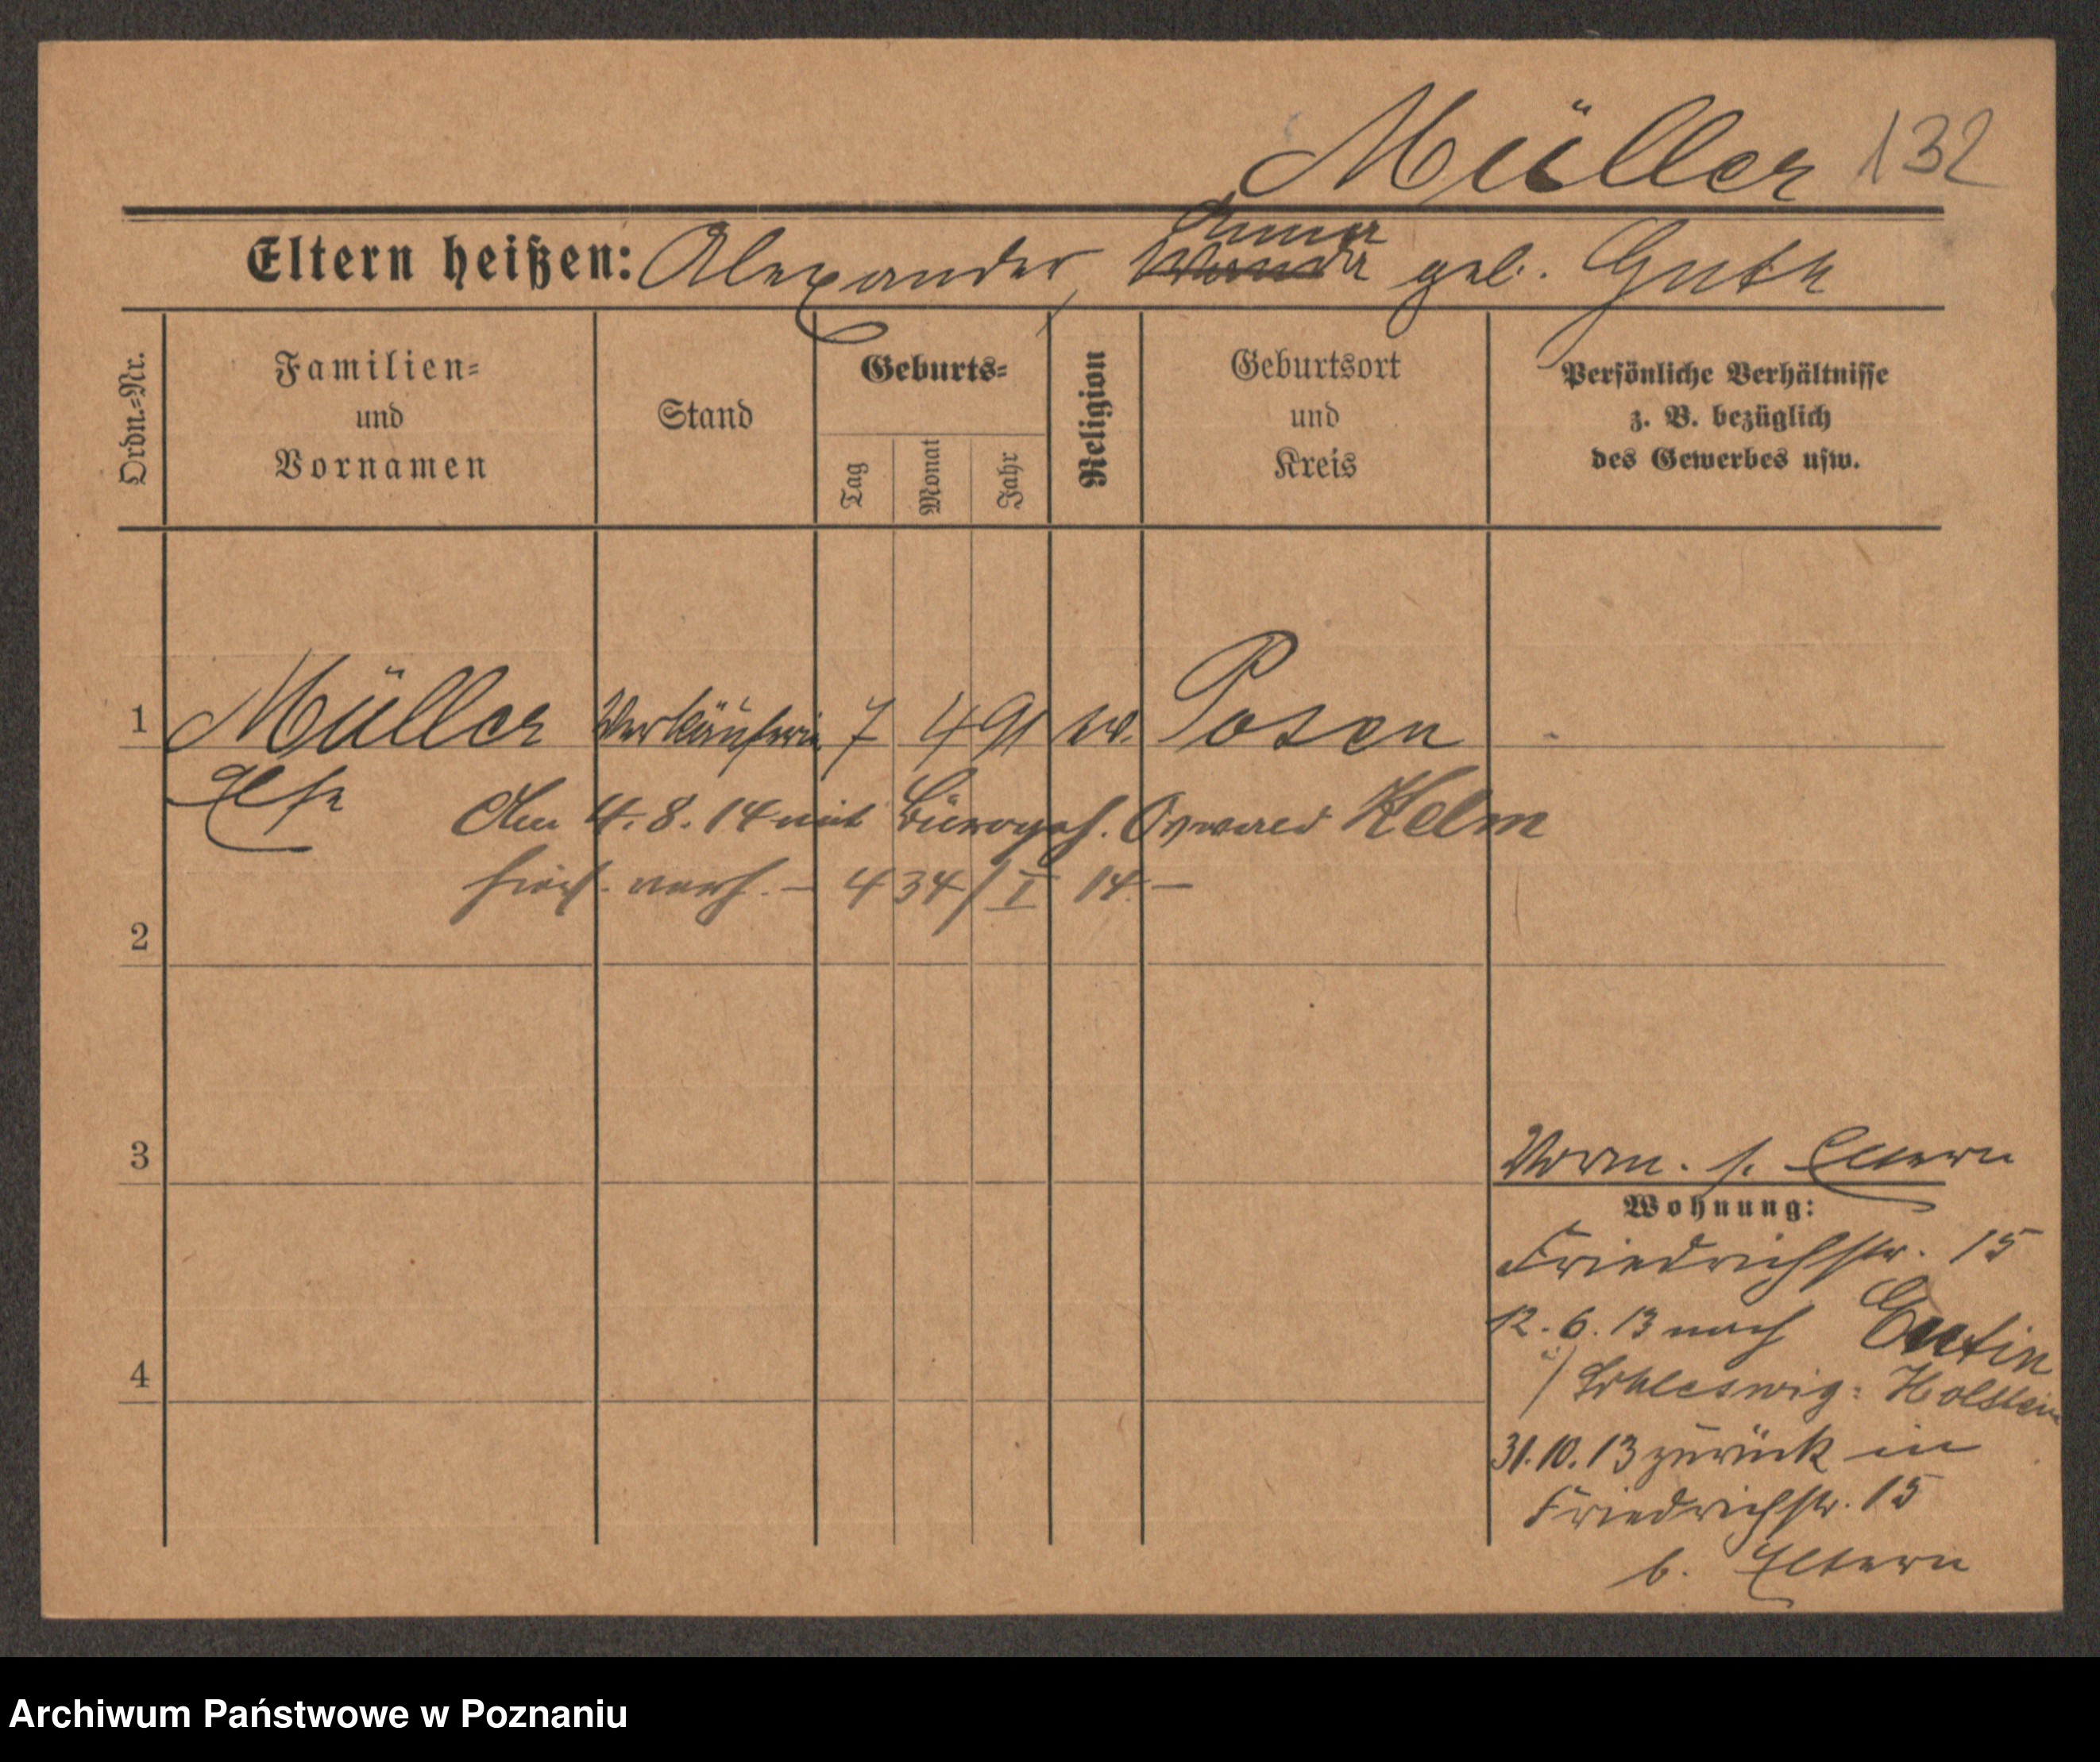 Müller 132
Eltern heißen: Alexander, Wanda geb. Guth
Anna
Ordn.=Nr.
Familien=
und
Vornamen
Stand
Geburts=
Tag
Monat
Jahr
Religion
Geburtsort
und
Kreis
Persönliche Verhältnisse
z. B. bezüglich
des Gewerbes usw.
1 Müller Verkäuferin 7 4 91 ev. Posen -
Else
Am 4.8.14 mit Bürogeh. Oswald Helm
hier verh. - 434/I 14.-
2
3
Vorm. s. Eltern
Wohnung:
Friedrichstr. 15
12.6.13 nach Eutin
i/ Schleswig-Holstein
4
31.10.13 zurück in
Friedrichstr. 15
b. Eltern
Archiwum Państwowe w Poznaniu